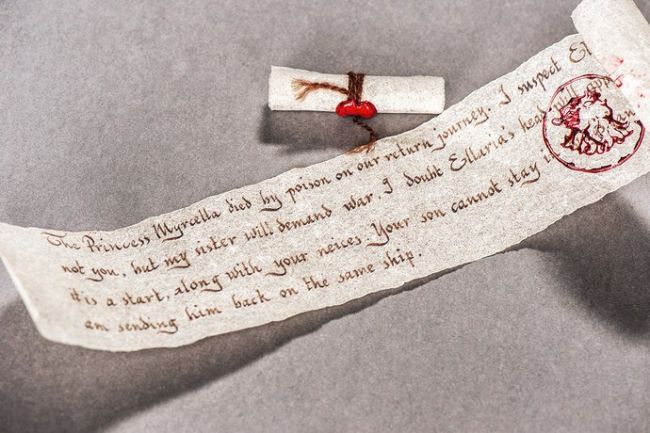 The Princess Myrcella died by poison on our return journey. I suspect
not you, but my sister will demand war. I doubt Ellaria's head will
it is a start, along with your neices. Your son cannot stay
am sending him back on the same ship.